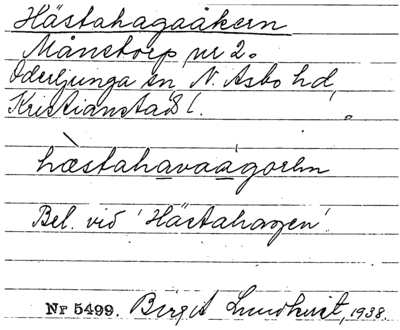 Hästahagaåkern
Månstorp nr 2.
Oderljunga sn, N. Åsbo hd,
Kristianstads l.
hæstahavaágoεhn
Bel. vid 'Hästahagen'.
Nr 5499. Birgit Lundkvist, 1938.